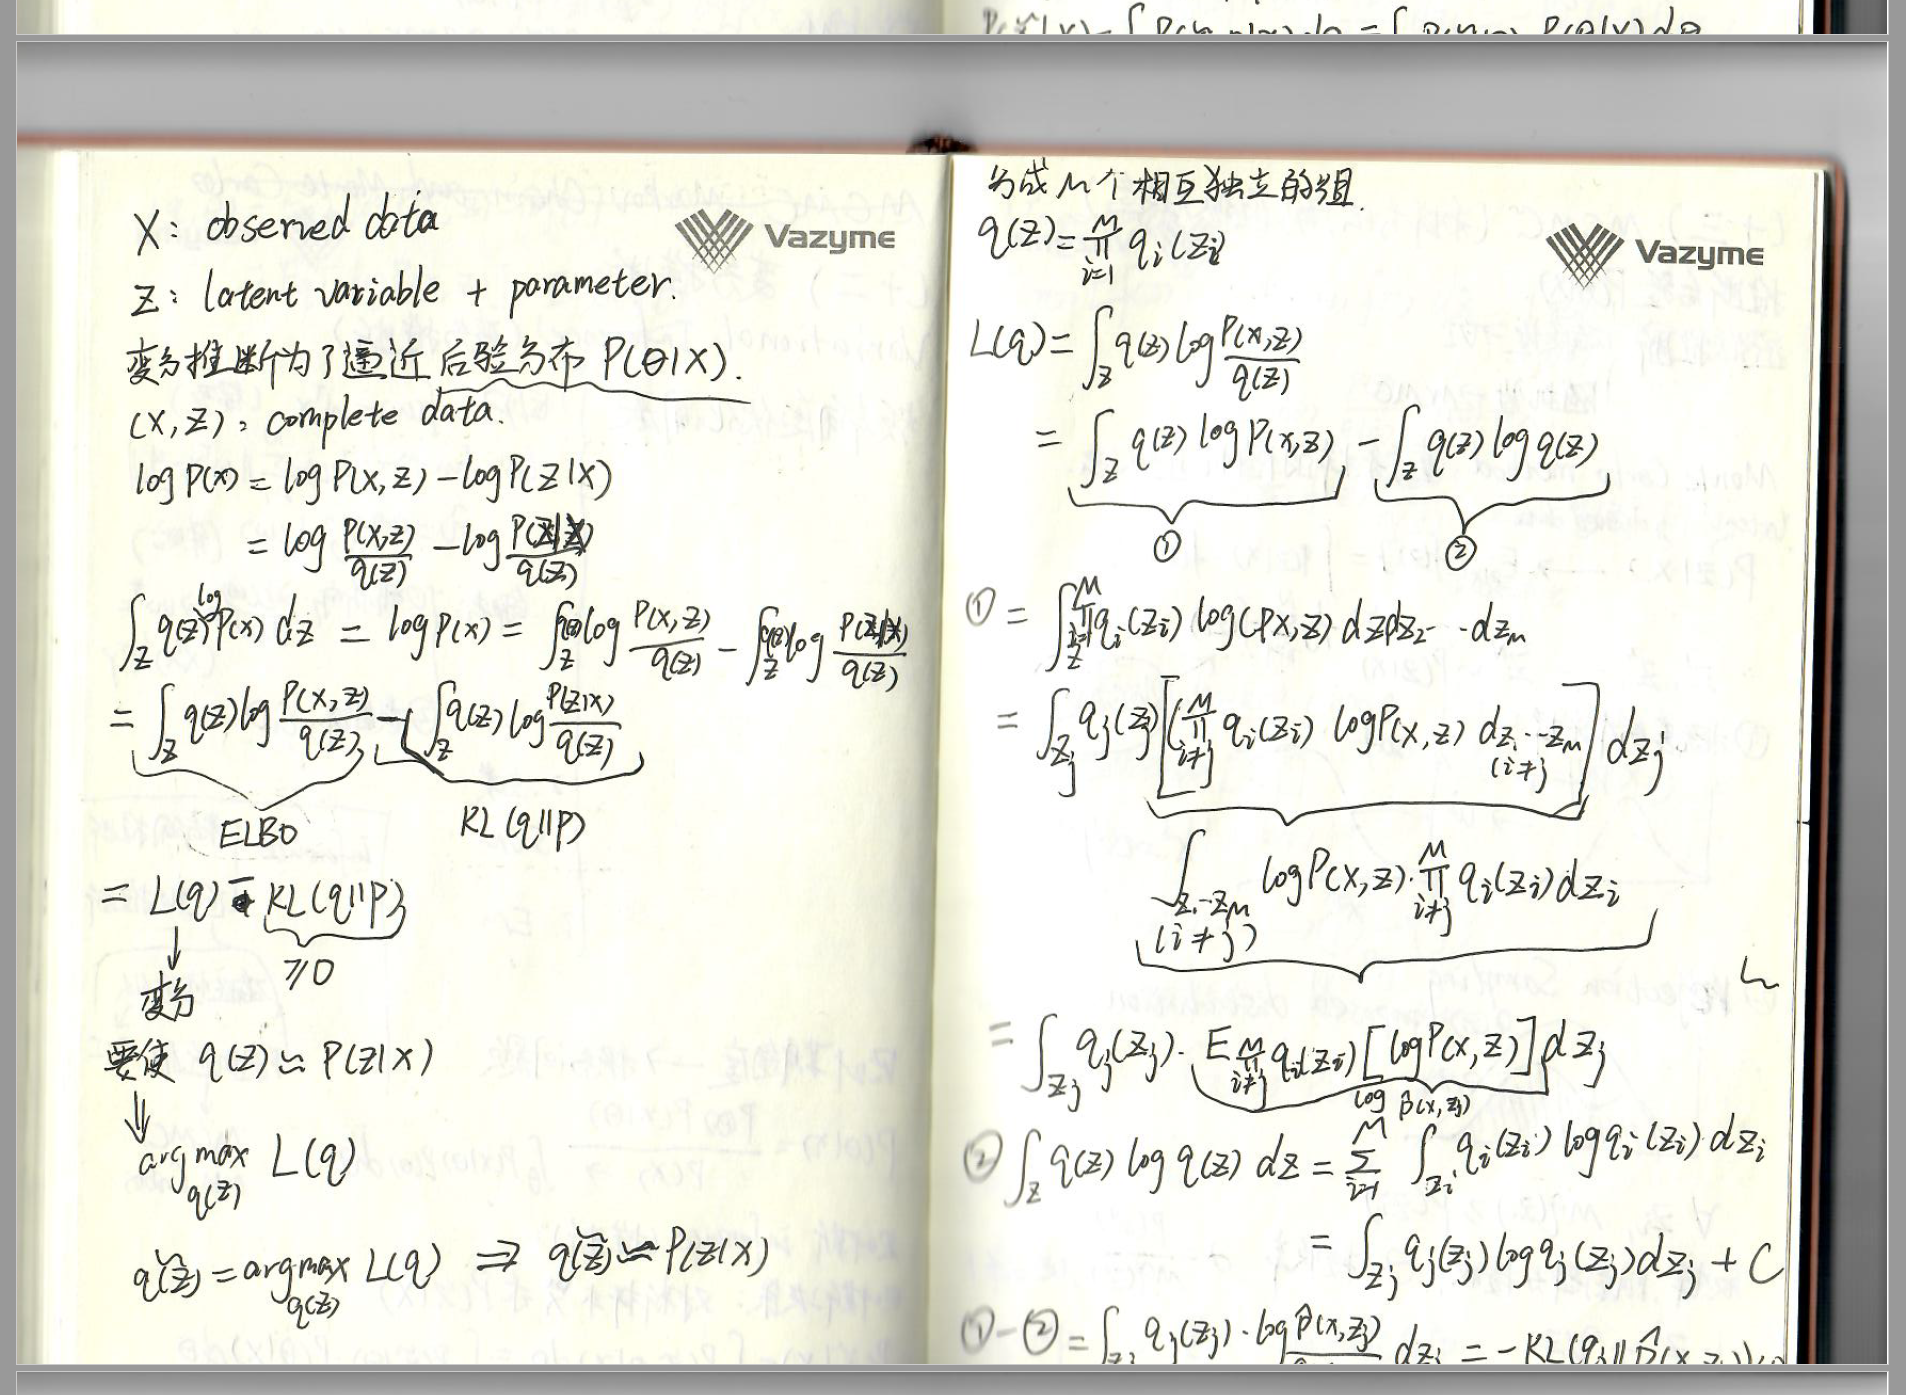 X: observed data
Vazyme
Z: latent variable + parameter.
变分推断为了逼近后验分布 P(θ|X).
(X,Z): complete data.
log P(x) = log P(x,z) - log P(z|x)
= log P(x,z)/q(z) - log P(z|x)/q(z)
∫_Z q(z) log P(x) dz = log P(x) = ∫_Z q(z) log P(x,z)/q(z) - ∫_Z q(z) log P(z|x)/q(z)
= ∫_Z q(z) log P(x,z)/q(z) - (∫_Z q(z) log P(z|x)/q(z)
ELBO KL(q||p)
= L(q) - KL(q||p)
↓ ≥0
变分
要使 q(z) ≃ P(z|x)
⇓
argmax_{q(z)} L(q)
q(z̃) = argmax_{q(z)} L(q) ⇒ q(z̃) ≃ P(z|x)
分成M个相互独立的组.
q(z) = ∏_{i=1}^{M} q_i(z_i)
Vazyme
L(q) = ∫_Z q(z) log P(x,z)/q(z)
= ∫_Z q(z) log P(x,z) - ∫_Z q(z) log q(z)
① ②
① = ∫_Z ∏_{i=1}^{M} q_i(z_i) log(P x,z) dz dz_2 ‑‑ dz_m
= ∫_{z_j} q_j(z_j) [(∏_{i≠j}^{M} q_i(z_i) log P(x,z) dz_i ‑‑ z_m (i≠j] dz_j
∫_{z_1-z_M (i≠j)} log P(x,z) · ∏_{i≠j}^{M} q_i(z_i) dz_i
= ∫_{z_j} q_j(z_j) · E_{∏_{i≠j}^{M} q_i(z_i)} [log P(x,z)] dz_j
log p̂(x,z_j)
② ∫_Z q(z) log q(z) dz = Σ_{i=1}^{M} ∫_{z_i} q_i(z_i) log q_i(z_i) dz_i
= ∫_{z_j} q_j(z_j) log q_j(z_j) dz_j + C